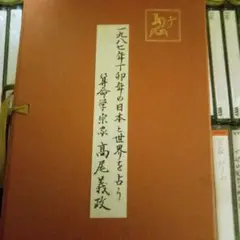 一九八七年丁卯年の日本と世界を占う
算命学宗家 高尾義政